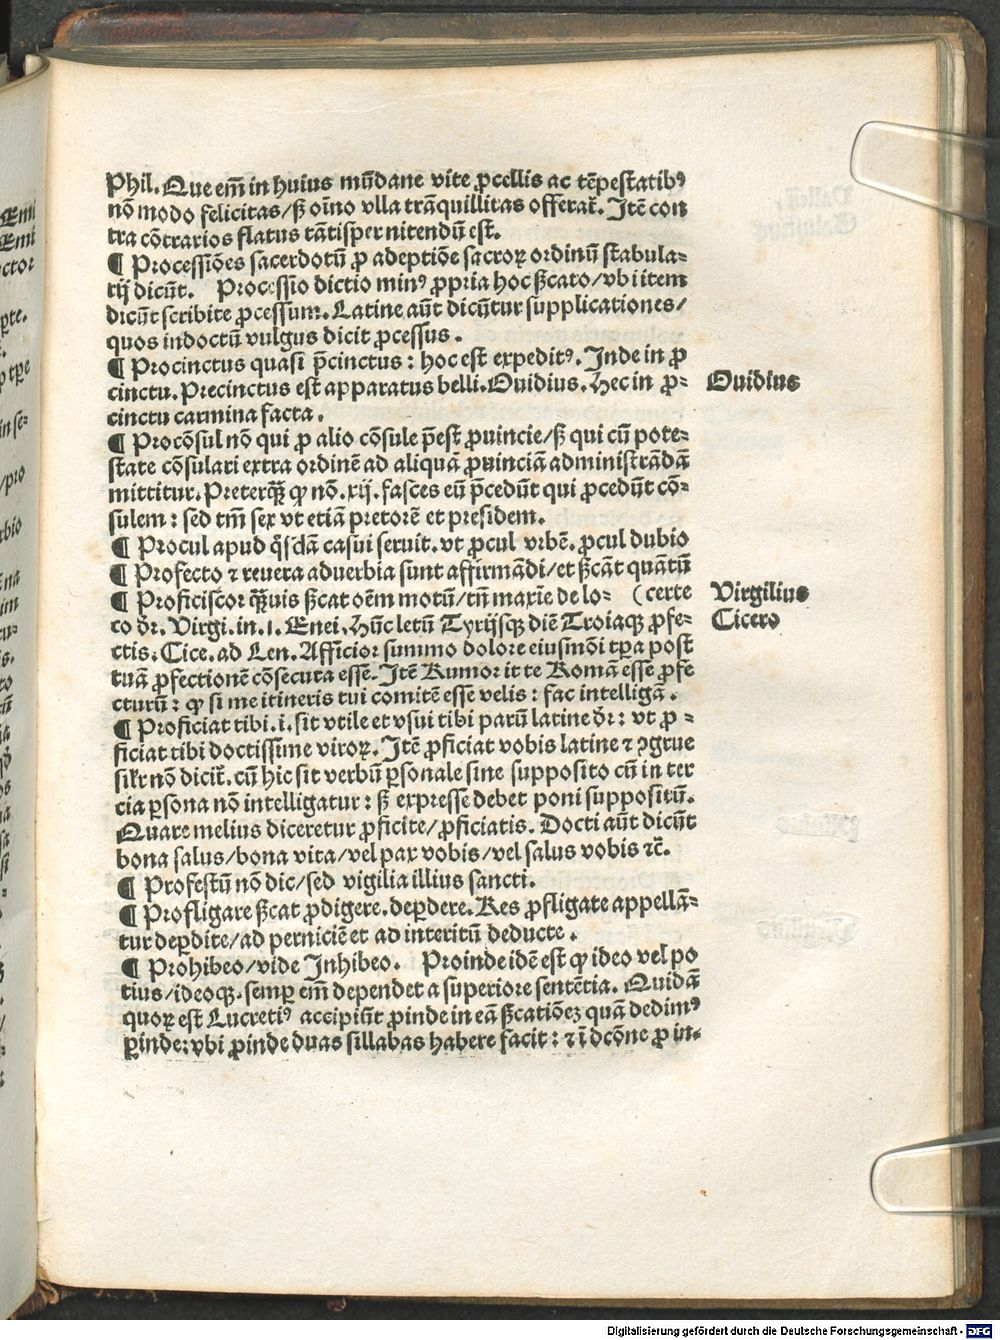 Phil. Que em̃ in huius mũdane vite ꝓcellis ac tẽpestatibꝰ
nõ modo felicitas/ ß oĩno vlla trãquillitas offerat᷑. Itẽ con
tra cõtrarios flatus tãtisper nitendũ est.
¶ Processiões sacerdotũ ꝓ adeptiõe sacroꝝ ordinũ stabula⸗
rij dicũt. Processio dictio minꝰ ꝓpria hoc ßcato/ vbi item
dicũt scribite ꝓcessum. Latine aũt dicũtur supplicationes/
quos indoctũ vulgus dicit ꝓcessus.
¶ Procinctus quasi p̃cinctus: hoc est expeditꝰ. Inde in ꝓ
cinctu. Precinctus est apparatus belli. Ouidius. Hec in ꝓ⸗
cinctu carmina facta.
Ouidius
¶ Procõsul nõ qui ꝓ alio cõsule p̃est ꝓuincie/ ß qui cũ pote⸗
state cõsulari extra ordinẽ ad aliquã ꝓuinciã administrãdã
mittitur. Preterq̃ȝ ꝙ nõ .xij. fasces eũ p̃cedũt qui ꝓcedũt cõ⸗
sulem: sed tm̃ sex vt etiã pretorẽ et presidem.
¶ Procul apud q̃sdã casui seruit. vt ꝓcul vrbẽ. ꝓcul dubio
¶ Profecto ⁊ reuera aduerbia sunt affirmãdi/ et ßcãt quãtũ
¶ Proficiscor q̃ȝuis ßcat oẽm motũ/ tñ maxĩe de lo⸗ (certe
co dr̃. Virgi. in .1. Enei. Hũc letũ Tyrijsqȝ diẽ Troiaqȝ ꝓfe⸗
Virgilius
Cicero
ctis. Cice. ad Len. Afficior summo dolore eiusmõi tp̃a post
tuã ꝓfectionẽ cõsecuta esse. Itẽ Rumor it te Romã esse ꝓfe
cturũ: ꝙ si me itineris tui comitẽ esse velis: fac intelligã.
¶ Proficiat tibi .i. sit vtile et vsui tibi parũ latine dr̃: vt ꝓ⸗
ficiat tibi doctissime viroꝝ. Itẽ ꝓficiat vobis latine ⁊ ꝯgrue
silr̃ nõ dicit᷑. cũ hic sit verbũ ꝑsonale sine supposito cũ in ter
cia ꝑsona nõ intelligatur: ß expresse debet poni suppositũ.
Quare melius diceretur ꝓficite/ ꝓficiatis. Docti aũt dicũt
bona salus/ bona vita/ vel pax vobis/ vel salus vobis ⁊c̃.
¶ Profestũ nõ dic/ sed vigilia illius sancti.
¶ Profligare ßcat ꝓdigere. deꝑdere. Res ꝓfligate appellã⸗
tur deꝑdite/ ad perniciẽ et ad interitũ deducte.
¶ Prohibeo/ vide Inhibeo. Proinde idẽ est ꝙ ideo vel po
tius/ ideoqȝ. semꝑ em̃ dependet a superiore sentẽtia. Quidã
quoꝝ est Lucretiꝰ accipiũt ꝓinde in eã ßcatiõeȝ quã dedimꝰ
ꝑinde: vbi ꝓinde duas sillabas habere facit: ⁊ ĩ dcõne ꝓ in⸗
Digitalisierung gefördert durch die Deutsche Forschungsgemeinschaft - DFG